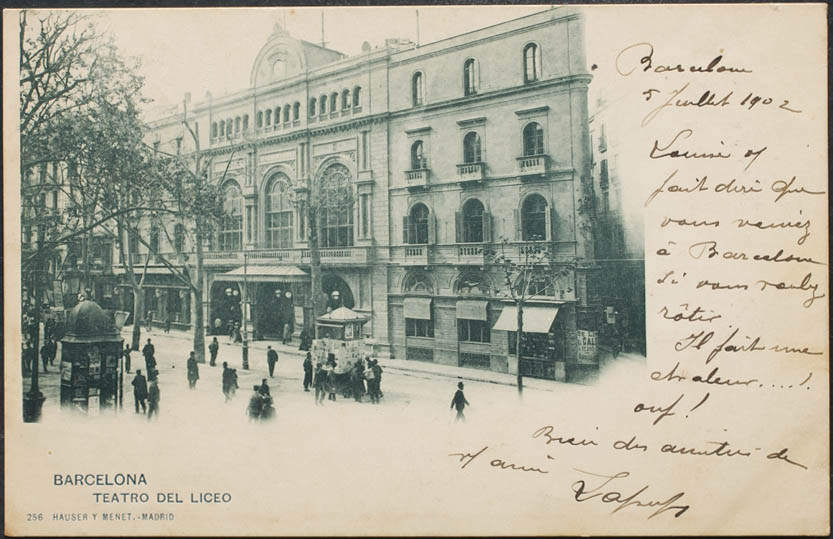 Barcelone
5 Juillet 1902
Louise
fait dire que
vous veniez
à Barcelone
si vous voulez
rôtir
Il fait une
chaleur....!
ouf!
Bien des amitiés de
ami
BARCELONA
TEATRO DEL LICEO
256 HAUSER Y MENET.-MADRID